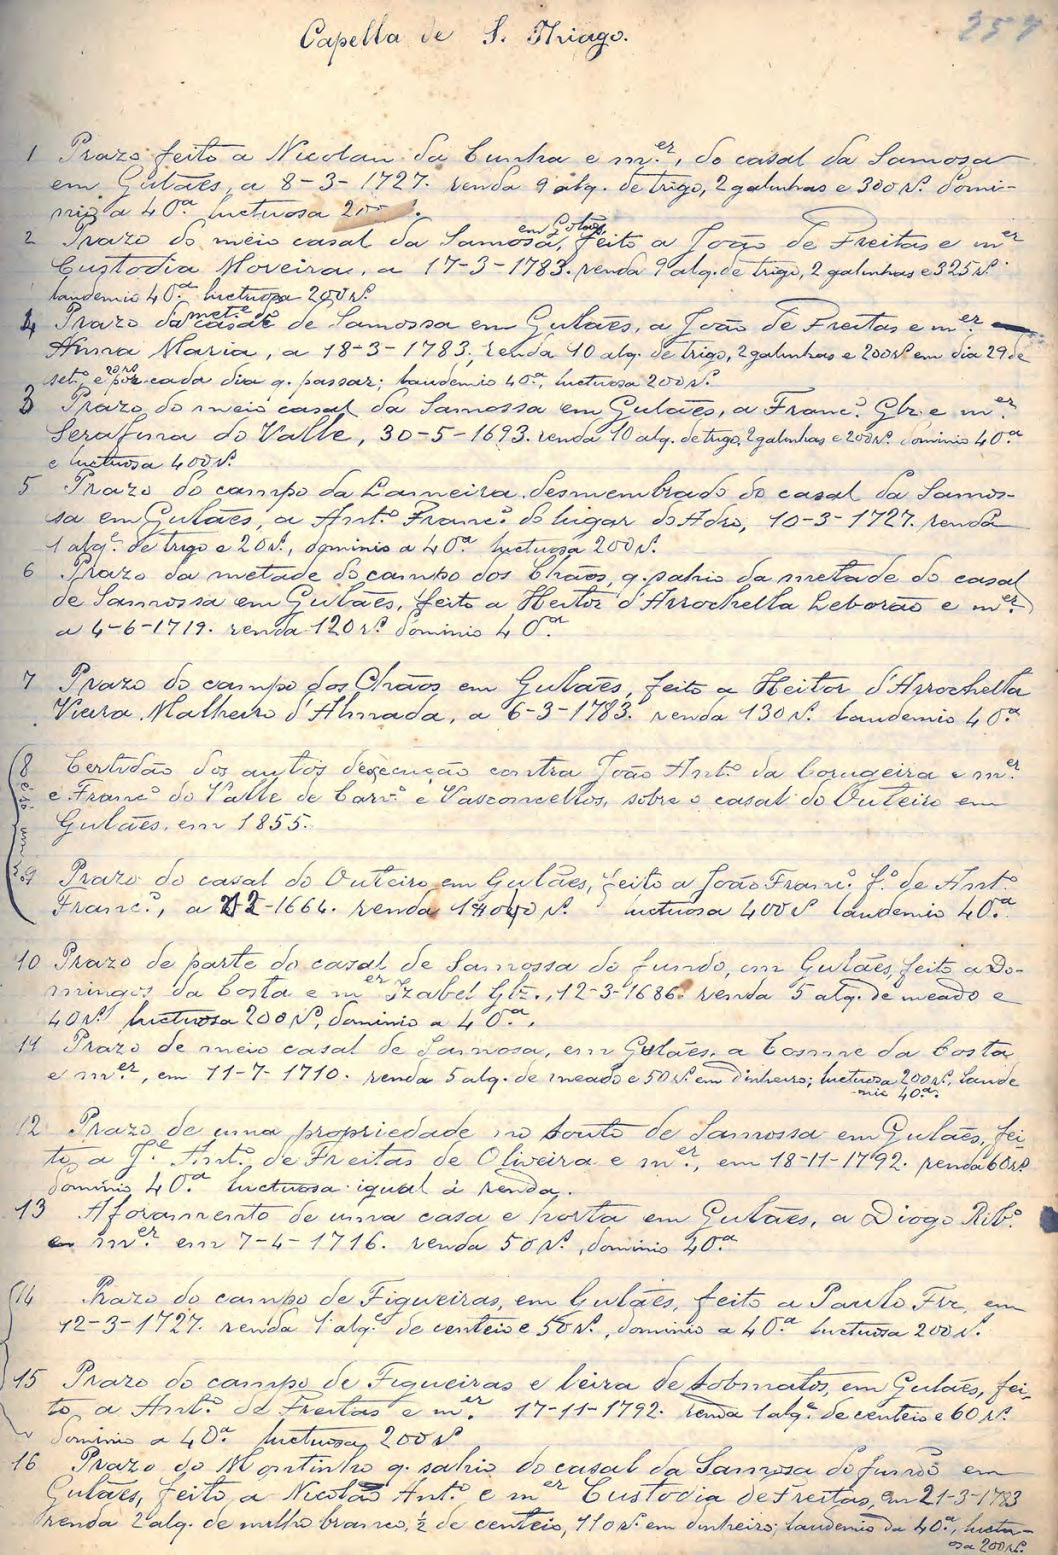 Capella de S. Thiago.
257
1 Prazo feito a Nicolau da Cunha e m.er, do casal da Samosa
em Gulães, a 8-3-1727. renda 9 alq. de trigo, 2 galinhas e 300 rs. domi-
nio a 40.ª luctuosa 200
2 Prazo do meio casal da Samosa, em Gulães, feito a João de Freitas e m.er
Custodia Moreira, a 17-3-1783. renda 9 alq. de trigo, 2 galinhas e 325 rs.
laudemio 40.ª luctuosa 200 rs.
4 Prazo da met.e do casal de Samossa em Gulães, a João de Freitas e m.er
Anna Maria, a 18-3-1783, renda 10 alq. de trigo, 2 galinhas e 200 rs. em dia 29 de
set.o e por cada dia q. passar; laudemio 40.ª, luctuosa 200 rs.
3 Prazo do meio casal da Samossa em Gulães, a Franc.o Glz e m.er
Serafina do Valle, 30-5-1693. renda 10 alq. de trigo, 2 galinhas e 200 rs. dominio 40.ª
e luctuosa 400 rs.
5 Prazo do campo da Lameira desmembrado do casal da Samos-
sa em Gulães, a Ant.o Franc.o do lugar do Adro, 10-3-1727. renda
1 alq.e de trigo e 20 rs., dominio a 40.ª luctuosa 200 rs.
6 Prazo da metade do campo dos Chãos, q. sahio da metade do casal
de Samossa em Gulães, feito a Heitor d'Arrochella Leborão e m.er
a 4-6-1719. renda 120 rs. dominio 40.ª
7 Prazo do campo dos Chãos em Gulães, feito a Heitor d'Arrochella
Vieira Malheiro d'Almada, a 6-3-1783. renda 130 rs. laudemio 40.ª
8 Certidão dos autos de execução contra João Ant.o da Corugeira e m.er
e Franc.o do Valle de Carv.o e Vasconcellos, sobre o casal do Outeiro em
Gulães, em 1855.
9 Prazo do casal do Outeiro em Gulães, feito a João Franc.o f.o de Ant.o
Franc.o, a -1664. renda rs. luctuosa 400 rs laudemio 40.ª
10 Prazo de parte do casal de Samossa do fundo, em Gulães, feito a Do-
mingos da Costa e m.er Izabel Glz., 12-3-1686. renda 5 alq. de meado e
40 rs. luctuosa 200 rs., dominio a 40.ª.
11 Prazo de meio casal de Samosa, em Gulães, a Cosme da Costa
e m.er, em 11-7-1710. renda 5 alq. de meado e 50 rs. em dinheiro; luctuosa 200 rs. laude
mio 40.ª.
12 Prazo de uma propriedade no souto de Samossa em Gulães, fei-
to, a J.e Ant.o de Freitas de Oliveira e m.er, em 18-11-1792. renda 60 rs.
dominio 40.ª luctuosa igual á renda.
13 Aforamento de uma casa e horta em Gulães, a Diogo Rib.o
e m.er em 7-4-1716. renda 50 rs., dominio 40.ª
14 Prazo do campo de Figueiras, em Gulães, feito a Paulo Frz, em
12-3-1727. renda 1 alq.e de centeio e 50 rs., dominio a 40.ª luctuosa 200 rs.
15 Prazo do campo de Figueiras e leira de Sobmatos, em Gulães, fei-
to a Ant.o de Freitas e m.er 17-11-1792. renda 1 alq.e de centeio e 60 rs.
dominio a 40.ª luctuosa 200 rs
16 Prazo do Montinho q. sahio do casal da Samosa do fundo em
Gulães, feito a Nicolao Ant.o e m.er Custodia de Freitas, em 21-3-1783
renda 2 alq. de milho branco, ½ de centeio, 110 rs. em dinheiro; laudemio da 40.ª, luctu-
osa 200 rs.